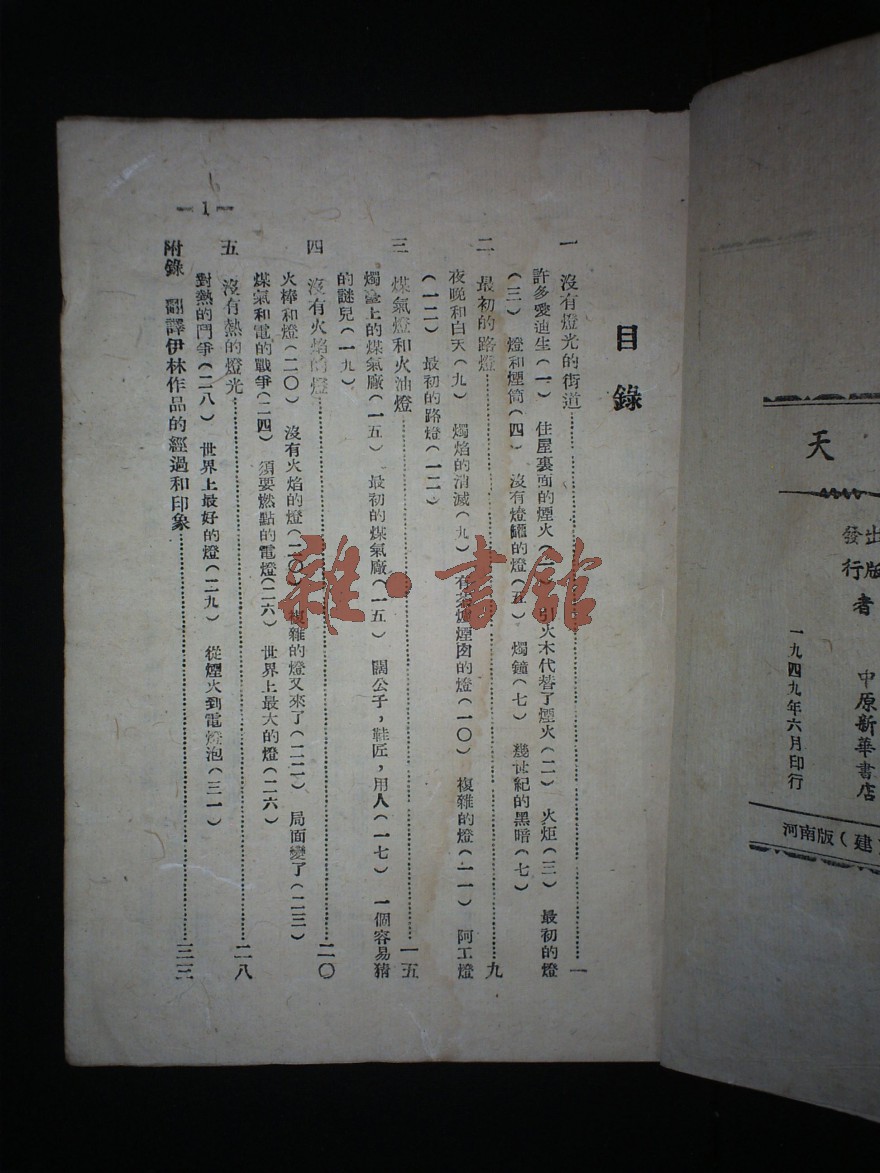 天
出版
發行者
中原新華書店
一九四九年六月印行
河南版(建
目錄
一 沒有燈光的街道……一
許多愛迪生(一) 住屋裏面的煙火(二) 引火木代替了煙火(二) 火炬(三) 最初的燈
(三) 燈和煙筒(四) 沒有燈罐的燈(五) 燭鐘(七) 幾世紀的黑暗(七)
二 最初的路燈……九
夜晚和白天(九) 燭焰的消滅(九) 有 煙囱的燈(一〇) 複雜的燈(一一) 阿工燈
(一二) 最初的路燈(一二)
三 煤氣燈和火油燈……一五
燭臺上的煤氣廠(一五) 最初的煤氣廠(一五) 闊公子,鞋匠,用人(一七) 一個容易猜
的謎兒(一九)
四 沒有火焰的燈……二〇
火棒和燈(二〇) 沒有火焰的燈(二〇) 複雜的燈又來了(二二) 局面變了(二三)
煤氣和電的戰爭(二四) 須要燃點的電燈(二六) 世界上最大的燈(二六)
五 沒有熱的燈光……二八
對熱的鬥爭(二八) 世界上最好的燈(二九) 從煙火到電燈泡(三一)
附錄 翻譯伊林作品的經過和印象……三三
—1—
雜·書館